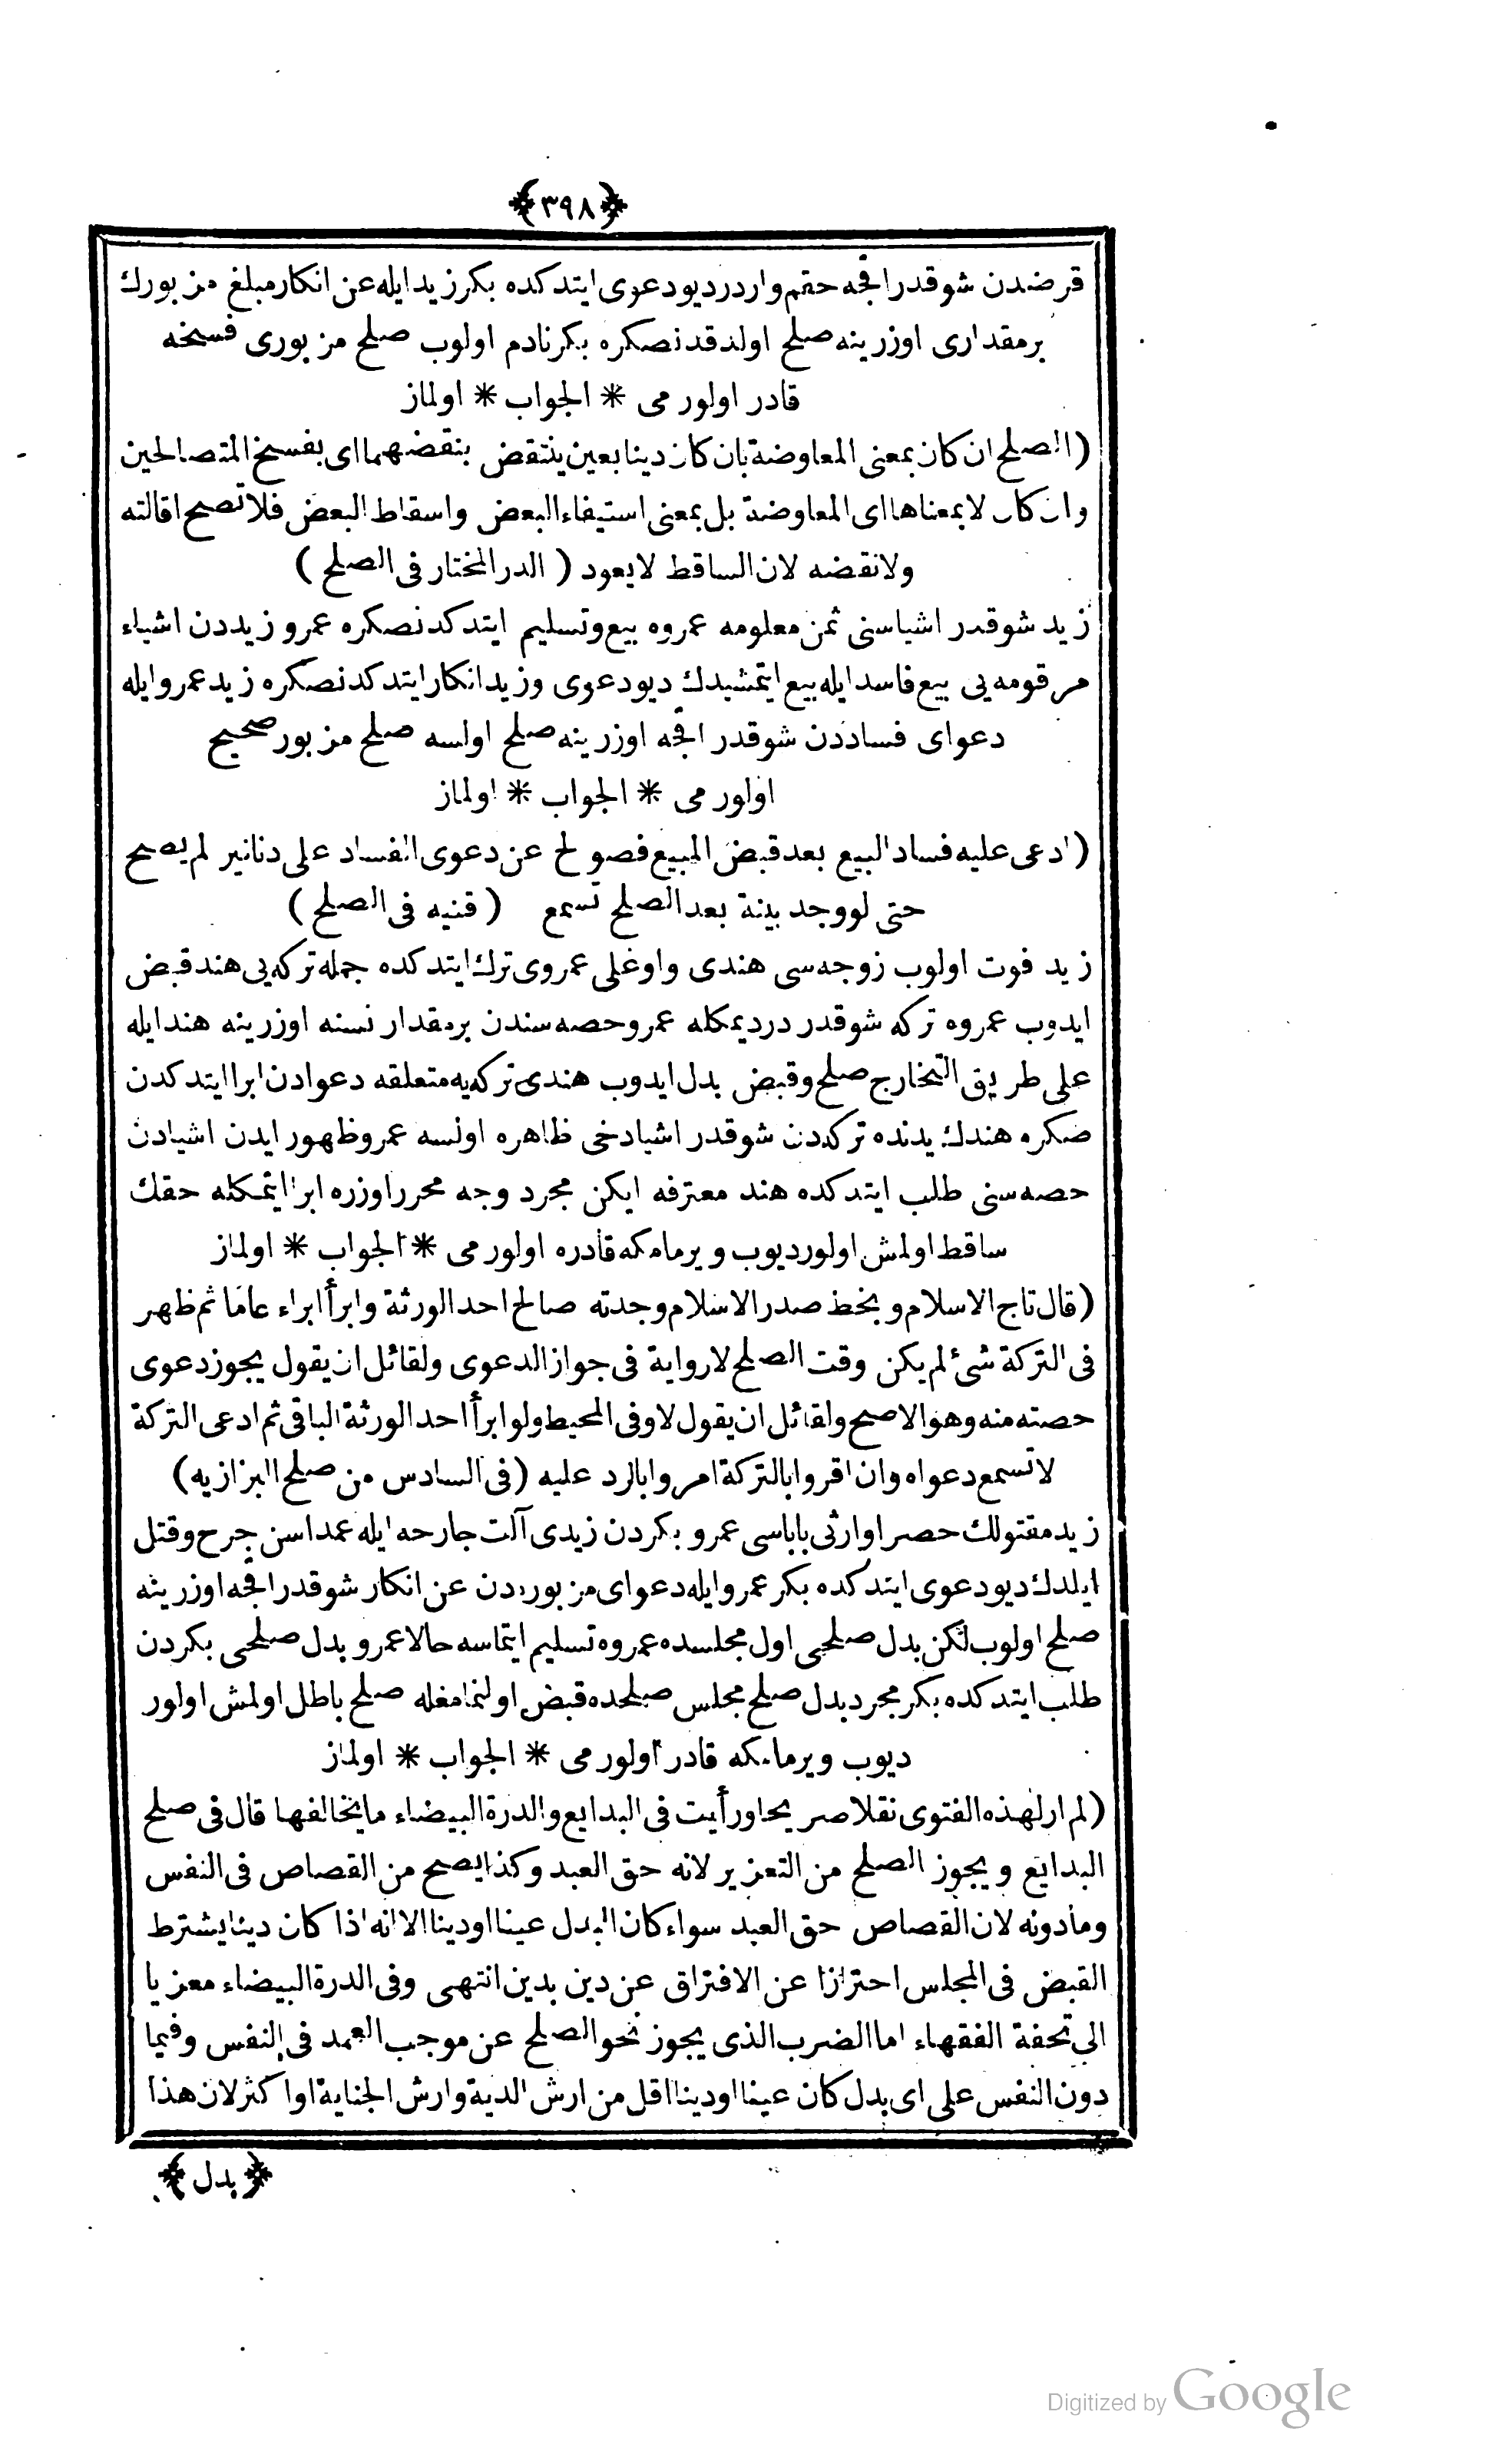 ﴿٣٩٨﴾
قرضدن شو قدر اقچه حقم واردر دیو دعوی ایتدكده بكر زید ایله عن انكار مبلغ مزبورك
بر مقداری اوزرینه صلح اولدقدنصكره بكر نادم اولوب صلح مزبوری فسخه
قادر اولور می * الجواب * اولماز
(الصلح ان كان بمعنى المعاوضة بان كان دینا بعین ینتقض بنقضهما ای بفسخ المتصالحین
وان كان لا بمعناها ای المعاوضة بل بمعنى استیفاء البعض واسقاط البعض فلا تصح اقالته
ولا نقضه لان الساقط لا یعود (الدر المختار فی الصلح)
زید شو قدر اشیاسنی ثمن معلومه عمروه بیع وتسلیم ایتدكدنصكره عمرو زیددن اشیاء
مرقومه یی بیع فاسد ایله بیع ایتمشیدك دیو دعوی وزید انكار ایتدكدنصكره زید عمرو ایله
دعوای فساددن شو قدر اقچه اوزرینه صلح اولسه صلح مزبور صحیح
اولور می * الجواب * اولماز
(ادعی علیه فساد البیع بعد قبض المبیع فصولح عن دعوی الفساد علی دنانیر لم یصح
حتی لو وجد بینة بعد الصلح تسمع (قنیه فی الصلح)
زید فوت اولوب زوجه سی هندی واوغلی عمروی ترك ایتدكده جمله تركه یی هند قبض
ایدوب عمروه تركه شو قدر در دیمكله عمرو حصه سندن بر مقدار نسنه اوزرینه هند ایله
علی طریق التخارج صلح وقبض بدل ایدوب هندی تركه یه متعلقه دعوادن ابرا ایتدكدن
صكره هندك یدنده تركه دن شو قدر اشیا دخی ظاهره اولسه عمرو ظهور ایدن اشیادن
حصه سنی طلب ایتدكده هند معترفه ایكن مجرد وجه محرر اوزره ابرا ایتمكله حقك
ساقط اولمش اولور دیوب ویرمامكه قادره اولور می * الجواب * اولماز
(قال تاج الاسلام وبخط صدر الاسلام وجدته صالح احد الورثة وابرأ ابراء عاما ثم ظهر
فی التركة شئ لم یكن وقت الصلح لا روایة فی جواز الدعوی ولقائل ان یقول یجوز دعوی
حصته منه وهو الاصح ولقائل ان یقول لا وفی المحیط ولو ابرأ احد الورثة الباقی ثم ادعی التركة
لا تسمع دعواه وان اقروا بالتركة امروا بالرد علیه (فی السادس من صلح البزازیه)
زید مقتولك حصرا وارثی باباسی عمرو بكردن زیدی آلت جارحه ایله عمدا سن جرح وقتل
ایلدك دیو دعوی ایتدكده بكر عمرو ایله دعوای مزبوردن عن انكار شو قدر اقچه اوزرینه
صلح اولوب لكن بدل صلحی اول مجلسده عمروه تسلیم ایتماسه حالا عمرو بدل صلحی بكردن
طلب ایتدكده بكر مجرد بدل صلح مجلس صلحده قبض اولنمامغله صلح باطل اولمش اولور
دیوب ویرمامكه قادر اولور می * الجواب * اولماز
(لم ار لهذه الفتوی نقلا صریحا ورأیت فی البدایع والدرة البیضاء ما یخالفها قال فی صلح
البدایع ویجوز الصلح من التعزیر لانه حق العبد وكذا یصح من القصاص فی النفس
وما دونه لان القصاص حق العبد سواء كان البدل عینا او دینا الا انه اذا كان دینا یشترط
القبض فی المجلس احترازا عن الافتراق عن دین بدین انتهی وفی الدرة البیضاء معزیا
الی تحفة الفقهاء اما الضرب الذی یجوز نحو الصلح عن موجب العمد فی النفس وفیما
دون النفس علی ای بدل كان عینا او دینا اقل من ارش الدیة وارش الجنایة او اكثر لان هذا
﴿بدل﴾
Digitized by Google